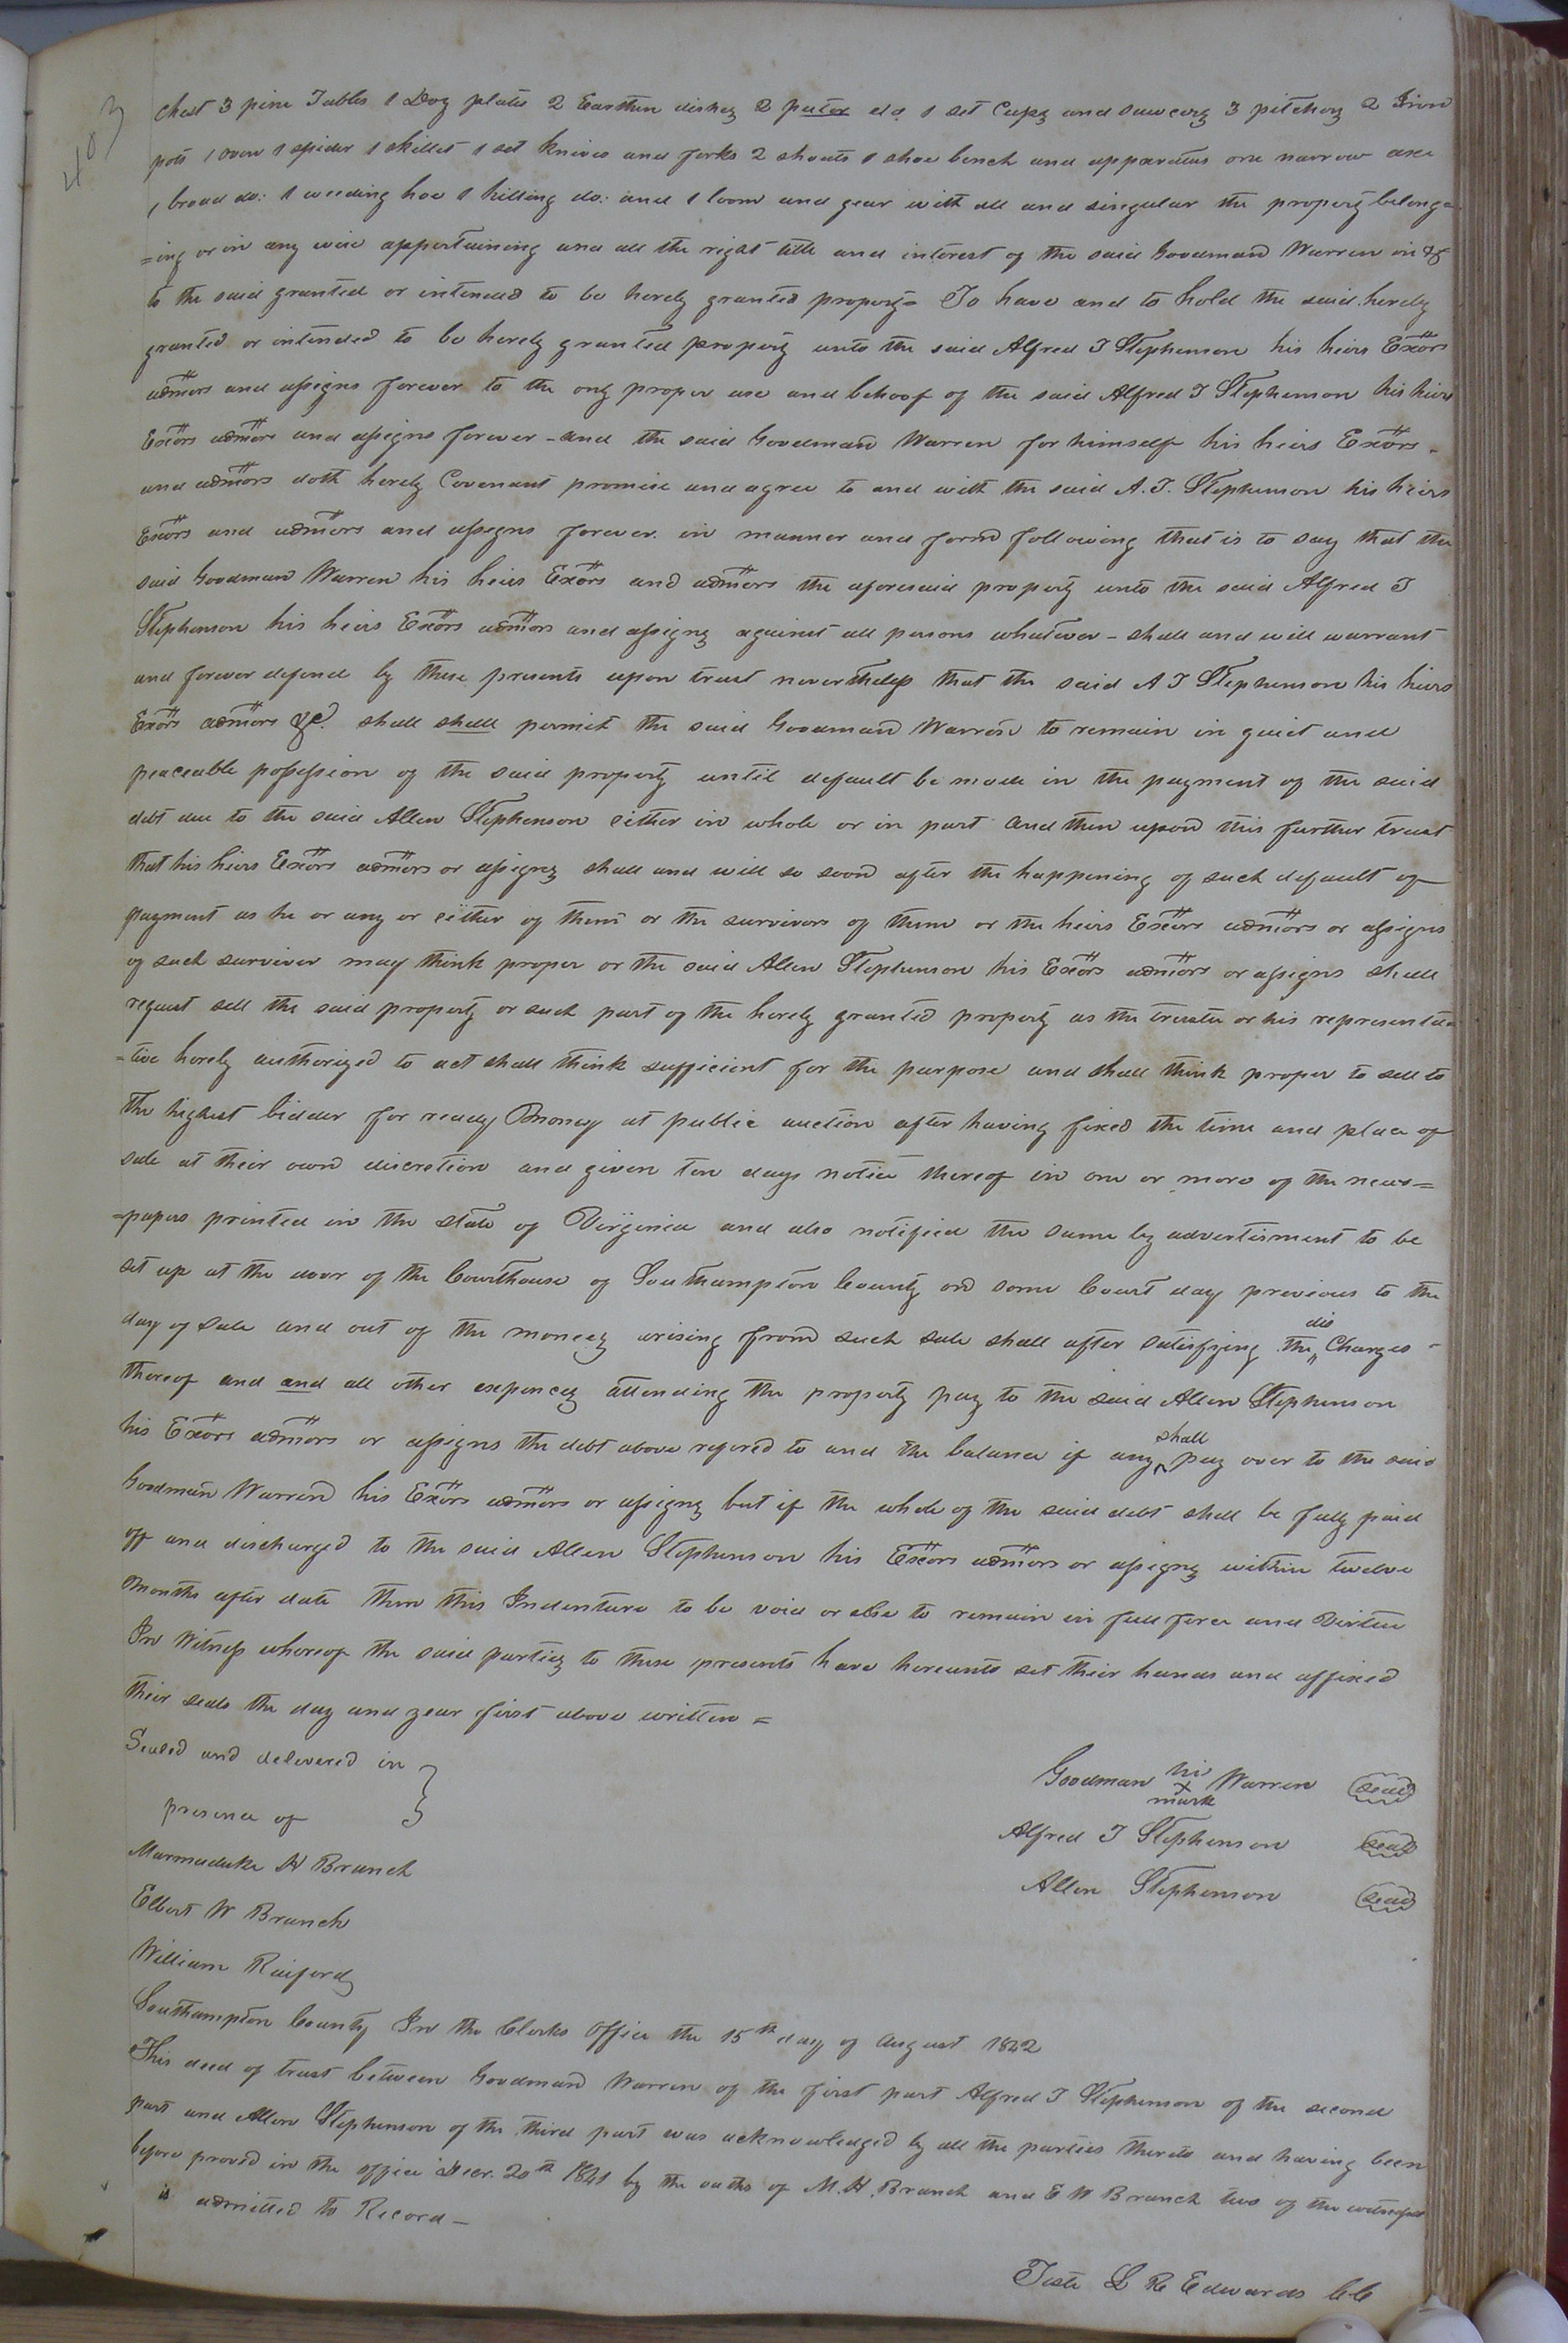 403
Chest 3 pine Tables 1 Doz plates 2 Earthen dishes 2 puter do 1 set Cups and sawcers 3 pitchers 2 Iron
pots 1 oven 1 spider 1 skillet 1 set knives and forks 2 shoats 1 shoe bench and apparatus one narrow axe
1 broad do: 1 weeding hoe 1 hilling do: and 1 loom and gear with all and singular the property belong=
=ing or in any wise appertaining and all the right title and interest of the said Goodman Warren in &
to the said granted or intended to be hereby granted property= To have and to hold the said hereby
granted or intended to be hereby granted property unto the said Alfred J Stephenson his heirs Exōrs
admōrs and assigns forever to the only proper use and behoof of the said Alfred J Stephenson his heirs
Exōrs admōrs and assigns forever - and the said Goodman Warren for himself his heirs Exōrs -
and admōrs doth hereby Covenant promise and agree to and with the said A. J. Stephenson his heirs
Exōrs and admōrs and assigns forever in manner and form following that is to say that the
said Goodman Warren his heirs Exōrs and admōrs the aforesaid property unto the said Alfred J
Stephenson his heirs Exōrs admōrs and assigns against all persons whatever - shall and will warrant
and forever defend by these presents upon trust nevertheless that the said A J Stephenson his heirs
Exōrs admōrs &c. shall shall permit the said Goodman Warren to remain in quiet and
peaceable possession of the said property until default be made in the payment of the said
debt due to the said Allen Stephenson either in whole or in part and then upon this further trust
that his heirs Exōrs admōrs or assigns shall and will so soon after the happening of such default of
payment as he or any or either of them or the survivors of them or the heirs Exōrs admōrs or assigns
of such survivor may think proper or the said Allen Stephenson his Exōrs admōrs or assigns shall
request sell the said property or such part of the hereby granted property as the trustee or his representa=
=tive hereby authorized to act shall think sufficient for the purpose and shall think proper to sell to
the highest bidder for ready Money at public auction after having fixed the time and place of
sale at their own discretion and given ten days notice thereof in one or more of the news=
=papers printed in the state of Virginia and also notified the same by advertisment to be
set up at the door of the Courthouse of Southampton County on some Court day previous to the
day of sale and out of the moneys arising from such sale shall after satisfying the dis Charges -
thereof and and all other expences attending the property pay to the said Allen Stephenson
his Exōrs admōrs or assigns the debt above refered to and the balance if any shall pay over to the said
Goodman Warren his Exōrs admōrs or assigns but if the whole of the said debt shall be fully paid
off and discharged to the said Allen Stephenson his Exōrs admōrs or assigns within twelve
Months after date then this Indenture to be void or else to remain in full force and Virtue
In Witness whereof the said parties to these presents have hereunto set their hands and affixed
their seals the day and year first above written =
Sealed and delivered in }
presence of
Goodman his x mark Warren seal
Alfred J Stephenson seal
Allen Stephenson seal
Marmaduke H Branch
Elbert W Branch
William Raiford
Southampton County In the Clerks Office the 15th day of August 1842
This deed of trust between Goodman Warren of the first part Alfred J Stephenson of the second
part and Allen Stephenson of the third part was acknowledged by all the parties thereto and having been
before proved in the office Decr. 20th 1841 by the oaths of M. H. Branch and E W Branch two of the witnesses
is admitted to Record -
Teste L R Edwards CC